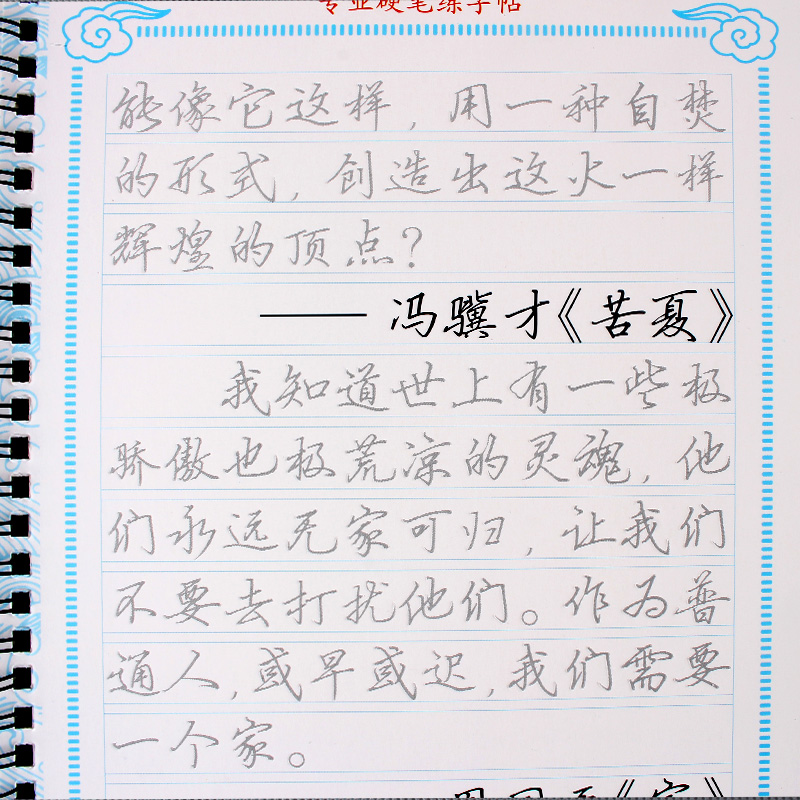 专业硬笔练字帖
能像它这样,用一种自焚
的形式,创造出这火一样
辉煌的顶点?
——冯骥才《苦夏》
我知道世上有一些极
骄傲也极荒凉的灵魂,他
们永远无家可归,让我们
不要去打扰他们。作为普
通人,或早或迟,我们需要
一个家。